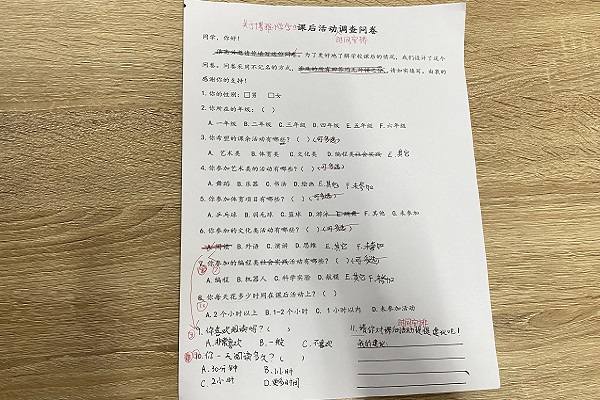 关于博雅小学的课后活动调查问卷
时间安排
同学，你好！
为了更好地了解学校课后的情况，我们设计了这个
问卷。问卷采用不记名的方式，请如实填写。由衷的
感谢你的支持！
1. 你的性别：□男 □女
2. 你所在的年级：（ ）
A. 一年级 B. 二年级 C. 三年级 D. 四年级 E. 五年级 F. 六年级
3. 你希望的课余活动有哪些？（ ）（可多选）
A. 艺术类 B. 体育类 C. 文化类 D. 编程类社会实践 E. 其它
4. 你参加艺术类的活动有哪些？（ ）（可多选）
A. 舞蹈 B. 乐器 C. 书法 D. 绘画 E. 其他 F. 未参加
5. 你参加体育项目有哪些？（ ）（可多选）
A. 乒乓球 B. 羽毛球 C. 篮球 D. 游泳 F. 其他 G. 未参加
6. 你参加的文化类活动有哪些？（ ）（可多选）
A. 阅读 B. 外语 C. 演讲 D. 思维 E. 其它 F. 未参加
7. 你参加的编程类社会实践活动有哪些？（ ）（可多选）
A. 编程 B. 机器人 C. 科学实验 D. 航模 E. 其它 F. 未参加
8. 你每天花多少时间在课后活动上？（ ）
A. 2 个小时以上 B. 1-2 个小时 C. 1 小时以内 D. 未参加活动
9. 你喜欢阅读吗？（ ）
A. 非常喜欢 B. 一般 C. 不喜欢
10. 你一天阅读多久？（ ）
A. 30分钟 B. 1小时
C. 2小时 D. 更多时间
时间安排
11. 请你对课后活动提提建议吧！
我的建议：